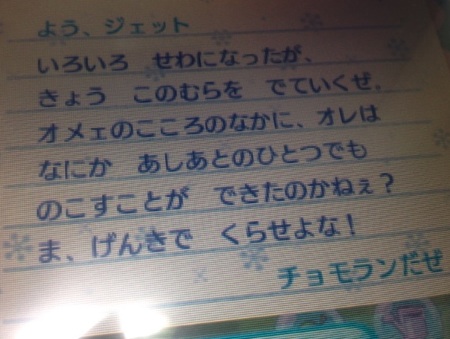 よう、ジェット
いろいろ　せわになったが、
きょう　このむらを　でていくぜ。
オメェのこころのなかに、オレは
なにか　あしあとのひとつでも
のこすことが　できたのかねぇ？
ま、げんきで　くらせよな！
チョモランだぜ